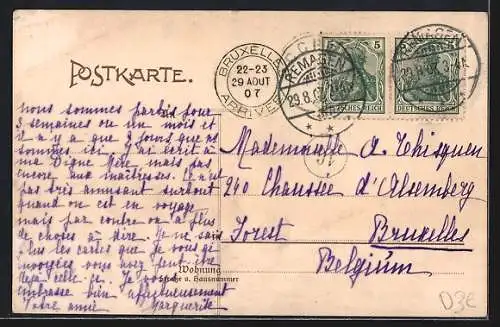 POSTKARTE.
BRUXELLES
22-23
29 AOUT
07
ARRIVEE
REMAGEN
29.8.07
5
DEUTSCHES REICH
REMAGEN
5
DEUTSCHES REICH
nous sommes partis pour
3 semaines ou un mois et
il y a que jours que nous
sommes ici. J'ai écrit à
ma Digne Mère mais pas
encore aux maîtresses. Ce n'est
pas très amusant surtout
quand on est en voyage
mais par contre on a plus
de choses à dire. Je ne sais
plus les cartes que je vous ai
envoyées vous avez peut être
déjà celle-ci. Je vous
embrasse bien affectueusement
Votre amie Marguerite
Mademoiselle A. Thisquen
240 Chaussée d'Alsemberg
Forest Bruxelles
Belgium
Wohnung
u. Hausnummer
D3E